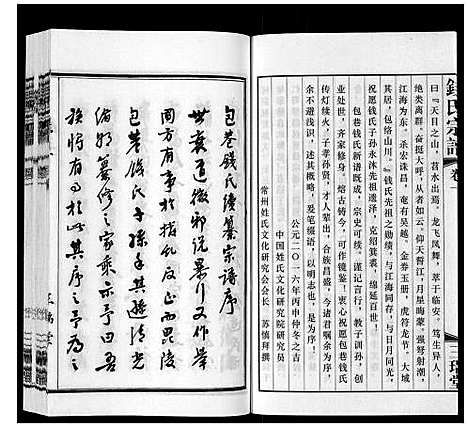 錢氏宗譜
卷一
三瑞堂
曰『天目之山，苕水出焉。龙飞凤舞，萃于临安。笃生异人，
绝类离群。奋挺大呼，从者如云。仰天誓江，月星晦蒙。强弩射潮，
江海为东。杀宏诛昌，奄有吴越。金券玉册，虎符龙节。大城
其居，包络山川。』钱氏先祖之勋绩，与江海同在，与日月同光，
祝愿钱氏子孙永沐先祖遗泽，克绍箕裘，绵延百世。
包巷钱氏新谱既成，宗史可续。谨记言行，教子训孙，
业分世，齐家修身。熔古铸今，可作镜鉴，衷心祝愿包巷钱氏
传灯续火，子孝孙贤，才人辈出，合族昌盛，今诸君嘱余为序，
余不避浅识，概述以上，爰笔缀语，以明志也，是为序。
公元二〇一六年丙申仲冬之吉
中国姓氏文化研究院研究员
常州姓氏文化研究会会长
苏慎拜撰
包巷钱氏续纂宗谱序
世衰道微邪说暴行又作举
国方有事于拨乱反正西毗陵
包巷钱氏子孙手其遊清光
绪朝纂修之家乘示予曰吾
族将有以此其序之予为之
三瑞堂